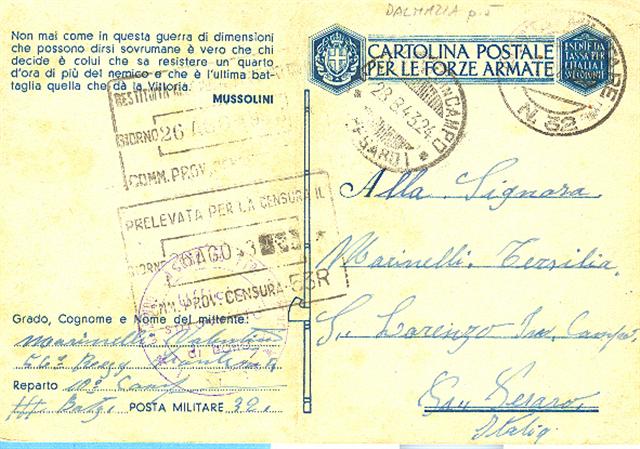 DALMAZIA p.5
Non mai come in questa guerra di dimensioni
che possono dirsi sovrumane è vero che chi
decide è colui che sa resistere un quarto
d'ora di più del nemico e che è l'ultima bat-
taglia quella che dà la Vittoria.
MUSSOLINI
CARTOLINA POSTALE
PER LE FORZE ARMATE
ESENTE DA
TASSA PER
L'ITALIA E
SUE COLONIE
N. 32
28.8.43.24
(PESARO)
RESTITUITA
GIORNO 26 AGO
COMM. PROV.
PRELEVATA PER LA CENSURA IL
GIORNO AGO
COMM. PROV. CENSURA 53R
Alla Signora
Marinelli Tersilia
S. Lorenzo In Campo
Pesaro
Italia
Grado, Cognome e Nome del mittente:
Marinelli Valentino
Reparto 10ª Comp
III Batg. POSTA MILITARE 32